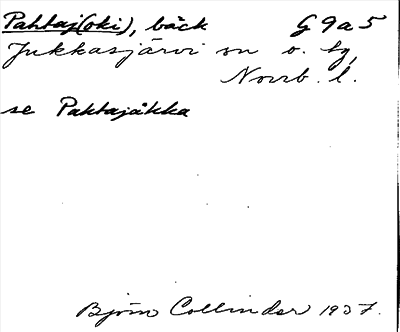 Pahtaj(oki), bäck G9a5
Jukkasjärvi sn o. by,
Norrb. l.
se Pahtajåkka
Björn Collinder 1937.